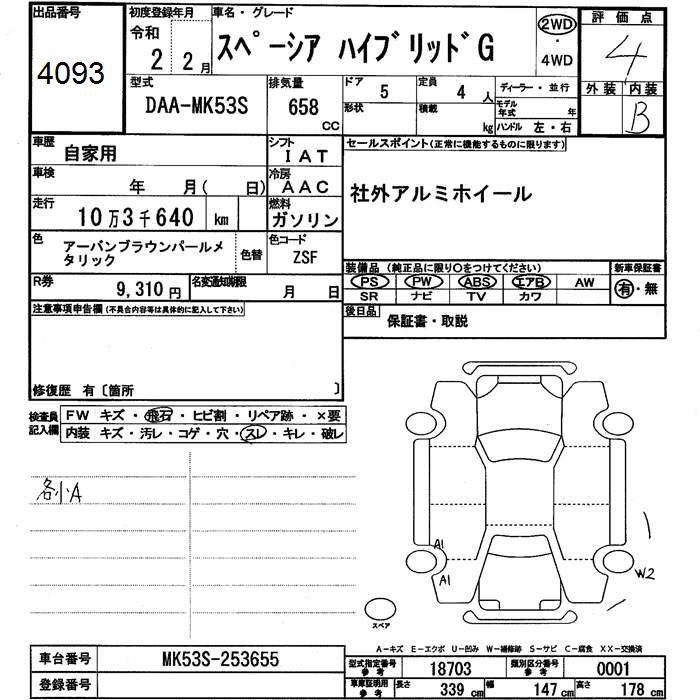 出品番号
4093
初度登録年月
令和
2 2月
車名・グレード
スペーシア ハイブリッドG
2WD
・
4WD
評価点
4
外装 内装
B
型式
DAA-MK53S
排気量
658
CC
ドア
5
形状
定員
4 人
積載
kg
ディーラー・並行
モデル年式 年
ハンドル 左・右
車歴
自家用
シフト
IAT
車検
年 月( 日)
冷房
AAC
走行
10万3千640 km
燃料
ガソリン
色
アーバンブラウンパールメ
タリック
色替
色コード
ZSF
R券
9,310円
名変通知期限
月 日
セールスポイント(正常に機能するものに限ります)
社外アルミホイール
装備品 (純正品に限り○をつけてください)
PS PW ABS エアB AW
SR ナビ TV カワ
新車保証書
有・無
後日品
保証書・取説
注意事項申告欄(不具合内容等は具体的に記入して下さい)
修復歴 有〔箇所 〕
検査員
記入欄
FW キズ・飛石・ヒビ割・リペア跡・×要
内装 キズ・汚レ・コゲ・穴・スレ・キレ・破レ
各小A
A1
A1
W2
スペア
A-キズ E-エクボ U-凹み W-補修跡 S-サビ C-腐食 XX-交換済
車台番号
MK53S-253655
登録番号
型式指定番号
参考
18703
類別区分番号
参考
0001
車庫証明用
参考
長さ 339 cm 幅 147 cm 高さ 178 cm